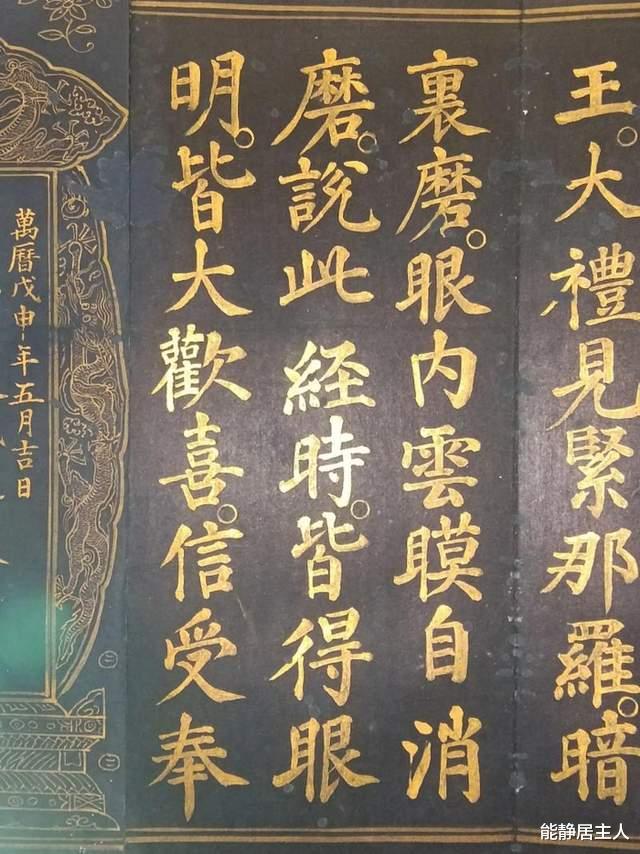 王。大禮見緊那羅。暗
裏磨。眼内雲膜自消
磨。說此経時。皆得眼
明。皆大歡喜。信受奉
萬曆戊申年五月吉日
能静居主人